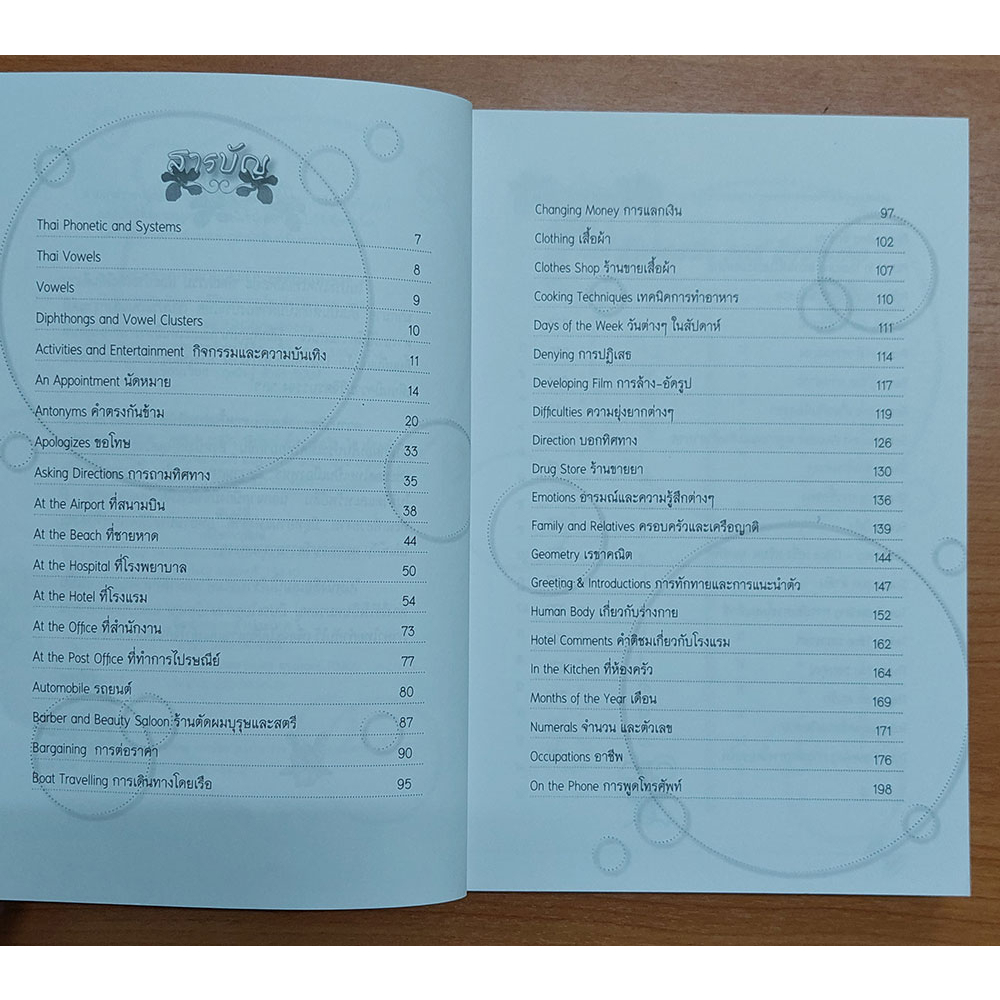 สารบัญ
Thai Phonetic and Systems 7
Thai Vowels 8
Vowels 9
Diphthongs and Vowel Clusters 10
Activities and Entertainment กิจกรรมและความบันเทิง 11
An Appointment นัดหมาย 14
Antonyms คำตรงกันข้าม 20
Apologizes ขอโทษ 33
Asking Directions การถามทิศทาง 35
At the Airport ที่สนามบิน 38
At the Beach ที่ชายหาด 44
At the Hospital ที่โรงพยาบาล 50
At the Hotel ที่โรงแรม 54
At the Office ที่สำนักงาน 73
At the Post Office ที่ทำการไปรษณีย์ 77
Automobile รถยนต์ 80
Barber and Beauty Saloon ร้านตัดผมบุรุษและสตรี 87
Bargaining การต่อราคา 90
Boat Travelling การเดินทางโดยเรือ 95
Changing Money การแลกเงิน 97
Clothing เสื้อผ้า 102
Clothes Shop ร้านขายเสื้อผ้า 107
Cooking Techniques เทคนิคการทำอาหาร 110
Days of the Week วันต่างๆ ในสัปดาห์ 111
Denying การปฏิเสธ 114
Developing Film การล้าง-อัดรูป 117
Difficulties ความยุ่งยากต่างๆ 119
Direction บอกทิศทาง 126
Drug Store ร้านขายยา 130
Emotions อารมณ์และความรู้สึกต่างๆ 136
Family and Relatives ครอบครัวและเครือญาติ 139
Geometry เรขาคณิต 144
Greeting & Introductions การทักทายและการแนะนำตัว 147
Human Body เกี่ยวกับร่างกาย 152
Hotel Comments คำติชมเกี่ยวกับโรงแรม 162
In the Kitchen ที่ห้องครัว 164
Months of the Year เดือน 169
Numerals จำนวน และตัวเลข 171
Occupations อาชีพ 176
On the Phone การพูดโทรศัพท์ 198